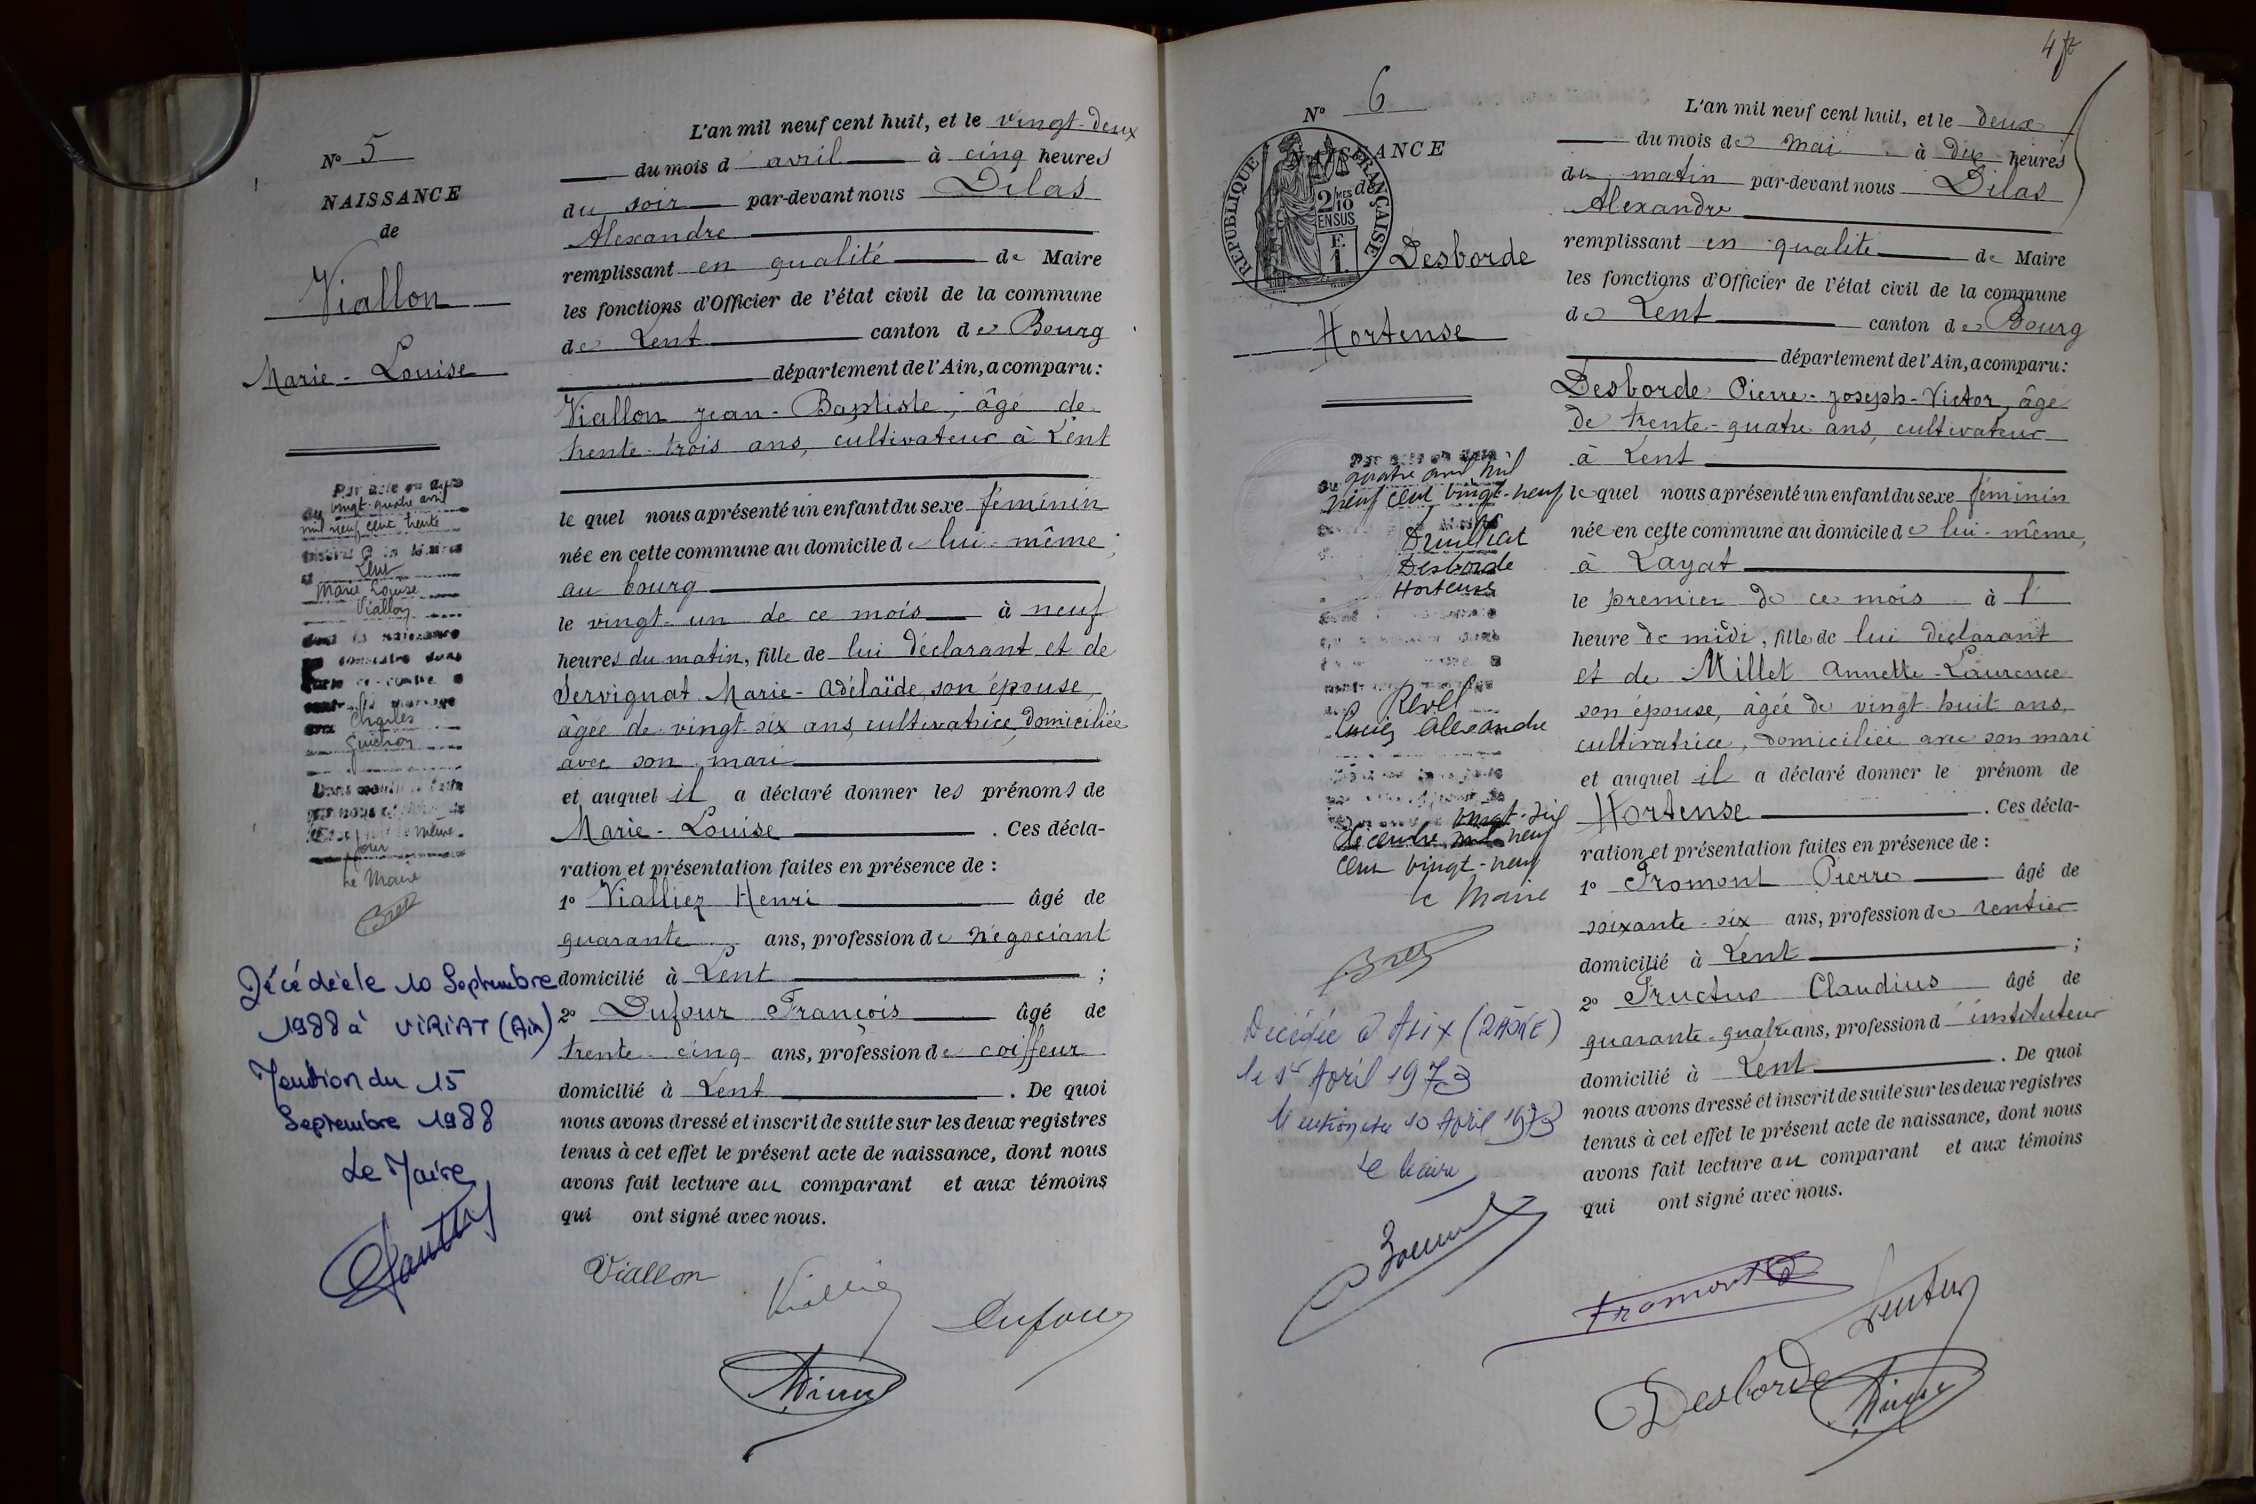 N° 5
NAISSANCE
de
Viallon
Marie-Louise
Par acte en date
du vingt-quatre avril
mil neuf cent trente
Lent
Marie Louise
Viallon
dont la naissance
Charles
Guichon
jour
Le Maire
Décédée le 10 Septembre
1988 à VIRIAT (Ain)
Mention du 15
Septembre 1988
Le Maire
L'an mil neuf cent huit, et le vingt-deux
du mois d'avril à cinq heures
du soir par-devant nous Dilas
Alexandre
remplissant en qualité de Maire
les fonctions d'Officier de l'état civil de la commune
de Lent canton de Bourg
département de l'Ain, a comparu :
Viallon Jean-Baptiste, âgé de
trente-trois ans, cultivateur à Lent
lequel nous a présenté un enfant du sexe féminin
née en cette commune au domicile de lui-même,
au bourg
le vingt-un de ce mois à neuf
heures du matin, fille de lui déclarant et de
Servignat Marie-Adélaïde, son épouse,
âgée de vingt-six ans, cultivatrice, domiciliée
avec son mari
et auquel il a déclaré donner les prénoms de
Marie-Louise . Ces décla-
ration et présentation faites en présence de :
1° Vialliez Henri âgé de
quarante ans, profession de négociant
domicilié à Lent ;
2° Dufour François âgé de
trente-cinq ans, profession de coiffeur
domicilié à Lent . De quoi
nous avons dressé et inscrit de suite sur les deux registres
tenus à cet effet le présent acte de naissance, dont nous
avons fait lecture au comparant et aux témoins
qui ont signé avec nous.
Viallon
Vialliez
Dufour
4
N° 6
NAISSANCE
de
RÉPUBLIQUE FRANÇAISE
2 MES
10
EN SUS
F.
1.
Desborde
Hortense
Par acte en date
du quatre avril mil
neuf cent vingt-neuf
Druillat
Desborde
Hortense
Revel
Lucien Alexandre
vingt-six
décembre mil neuf
cent vingt-neuf
le Maire
Décédée à Alix (RHÔNE)
le 1er Avril 1973
Mention du 10 Avril 1973
Le Maire
L'an mil neuf cent huit, et le deux
du mois de mai à dix heures
du matin par-devant nous Dilas
Alexandre
remplissant en qualité de Maire
les fonctions d'Officier de l'état civil de la commune
de Lent canton de Bourg
département de l'Ain, a comparu :
Desborde Pierre-Joseph-Victor, âgé
de trente-quatre ans, cultivateur
à Lent
lequel nous a présenté un enfant du sexe féminin
née en cette commune au domicile de lui-même,
à Layat
le premier de ce mois à l'
heure de midi, fille de lui déclarant
et de Millet Annette-Laurence
son épouse, âgée de vingt-huit ans,
cultivatrice, domiciliée avec son mari
et auquel il a déclaré donner le prénom de
Hortense . Ces décla-
ration et présentation faites en présence de :
1° Fromont Pierre âgé de
soixante-six ans, profession de rentier
domicilié à Lent ;
2° Fructus Claudius âgé de
quarante-quatre ans, profession d'instituteur
domicilié à Lent . De quoi
nous avons dressé et inscrit de suite sur les deux registres
tenus à cet effet le présent acte de naissance, dont nous
avons fait lecture au comparant et aux témoins
qui ont signé avec nous.
Fromont
Fructus
Desborde